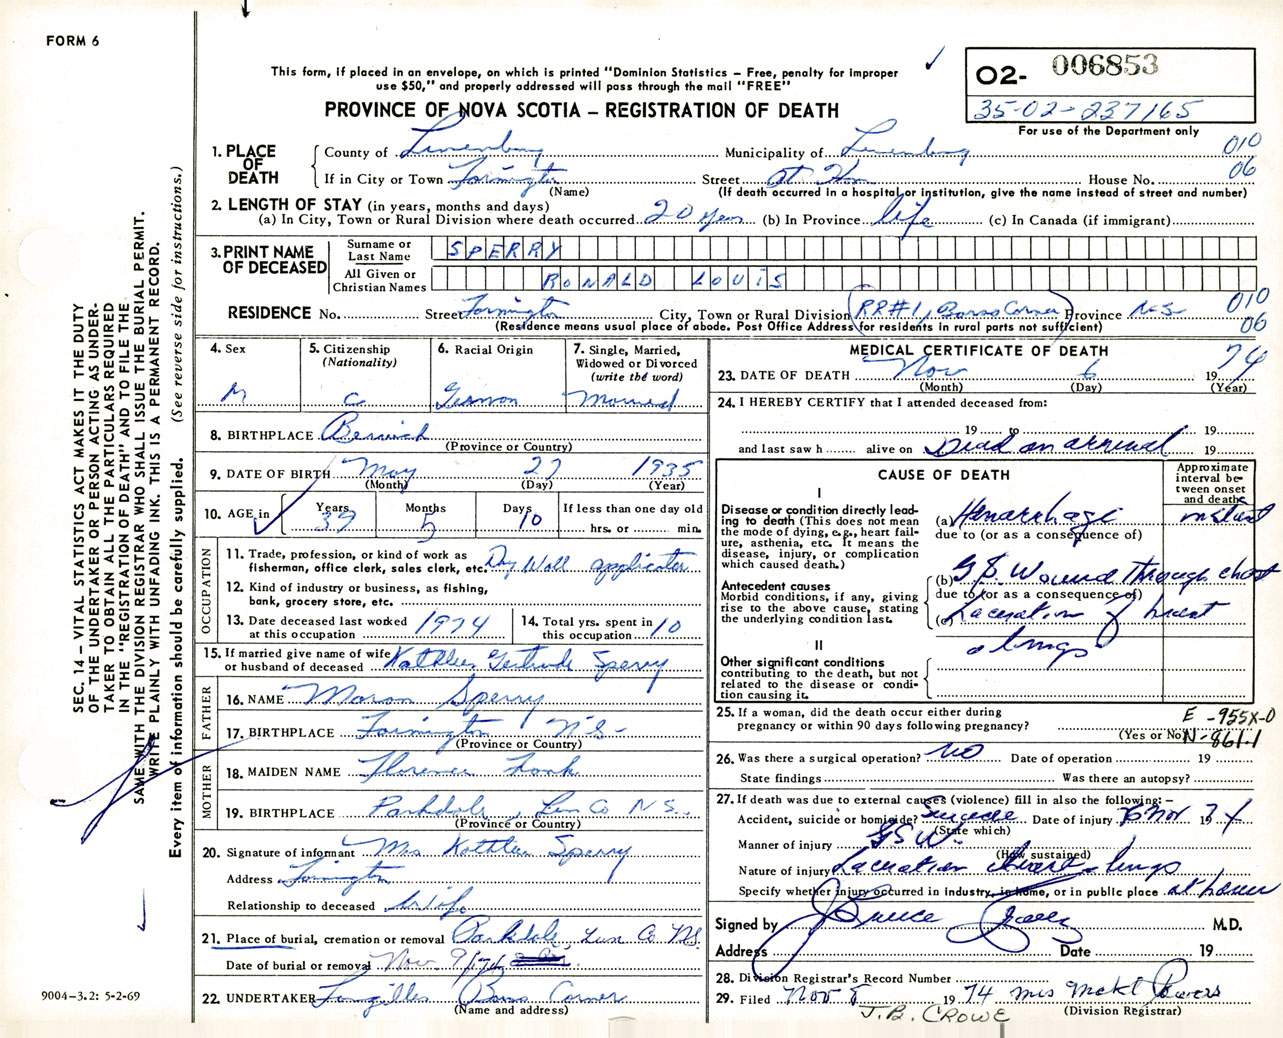 FORM 6
This form, if placed in an envelope, on which is printed "Dominion Statistics – Free, penalty for improper
use $50," and properly addressed will pass through the mail "FREE"
PROVINCE OF NOVA SCOTIA – REGISTRATION OF DEATH
O2- 006853
35-02-237165
For use of the Department only
1. PLACE OF DEATH
County of Lunenburg Municipality of Lunenburg 010
If in City or Town Farmington Street At Home House No. 06
(Name) (If death occurred in a hospital or institution, give the name instead of street and number)
2. LENGTH OF STAY (in years, months and days)
(a) In City, Town or Rural Division where death occurred 20 years (b) In Province life (c) In Canada (if immigrant)
3. PRINT NAME OF DECEASED
Surname or Last Name SPERRY
All Given or Christian Names RONALD LOUIS
RESIDENCE No. Street Farmington City, Town or Rural Division RR#1, Barss Corner Province N.S. 010
(Residence means usual place of abode. Post Office Address for residents in rural parts not sufficient) 06
4. Sex
M
5. Citizenship
(Nationality)
C
6. Racial Origin
German
7. Single, Married,
Widowed or Divorced
(write the word)
Married
8. BIRTHPLACE Berwick
(Province or Country)
9. DATE OF BIRTH May 27 1935
(Month) (Day) (Year)
10. AGE in
Years 39
Months 5
Days 10
If less than one day old
hrs. or min.
OCCUPATION
11. Trade, profession, or kind of work as
fisherman, office clerk, sales clerk, etc. Dry Wall applicator
12. Kind of industry or business, as fishing,
bank, grocery store, etc.
13. Date deceased last worked
at this occupation 1974
14. Total yrs. spent in
this occupation 10
15. If married give name of wife
or husband of deceased Kathleen Gertrude Sperry
FATHER
16. NAME Sperry
17. BIRTHPLACE Farmington N.S.
(Province or Country)
MOTHER
18. MAIDEN NAME Florence
19. BIRTHPLACE Parkdale, Lun Co N.S.
(Province or Country)
20. Signature of informant Mrs Kathleen Sperry
Address Farmington
Relationship to deceased Wife
21. Place of burial, cremation or removal Parkdale, Lun Co N.S.
Date of burial or removal Nov 9/74
22. UNDERTAKER Barss Corner
(Name and address)
MEDICAL CERTIFICATE OF DEATH
23. DATE OF DEATH Nov 6 1974
(Month) (Day) (Year)
24. I HEREBY CERTIFY that I attended deceased from:
19 to 19
and last saw h alive on Dead on arrival 19
CAUSE OF DEATH
Approximate
interval be-
tween onset
and death
I
Disease or condition directly lead-
ing to death (This does not mean
the mode of dying, e.g., heart fail-
ure, asthenia, etc. It means the
disease, injury, or complication
which caused death.)
(a) Hemorrhage instant
due to (or as a consequence of)
Antecedent causes
Morbid conditions, if any, giving
rise to the above cause, stating
the underlying condition last.
(b) G.S. Wound through chest
due to (or as a consequence of)
(c) Laceration of heart
& lungs
II
Other significant conditions
contributing to the death, but not
related to the disease or condi-
tion causing it.
25. If a woman, did the death occur either during
pregnancy or within 90 days following pregnancy?
(Yes or No)
E-955X-0
N-861-1
26. Was there a surgical operation? NO Date of operation 19
State findings Was there an autopsy?
27. If death was due to external causes (violence) fill in also the following:–
Accident, suicide or homicide? Suicide Date of injury 6 Nov 1974
(State which)
Manner of injury GSW
(How sustained)
Nature of injury Laceration heart lungs
Specify whether injury occurred in industry, in home, or in public place at home
Signed by Bruce M.D.
Address Date 19
28. Division Registrar's Record Number
29. Filed Nov 8 1974 Mrs
(Division Registrar)
J.B. CROWE
SEC. 14 – VITAL STATISTICS ACT MAKES IT THE DUTY
OF THE UNDERTAKER OR PERSON ACTING AS UNDER-
TAKER TO OBTAIN ALL THE PARTICULARS REQUIRED
IN THE "REGISTRATION OF DEATH" AND TO FILE THE
SAME WITH THE DIVISION REGISTRAR WHO SHALL ISSUE THE BURIAL PERMIT.
WRITE PLAINLY WITH UNFADING INK. THIS IS A PERMANENT RECORD.
Every item of information should be carefully supplied. (See reverse side for instructions.)
9004-3.2: 5-2-69